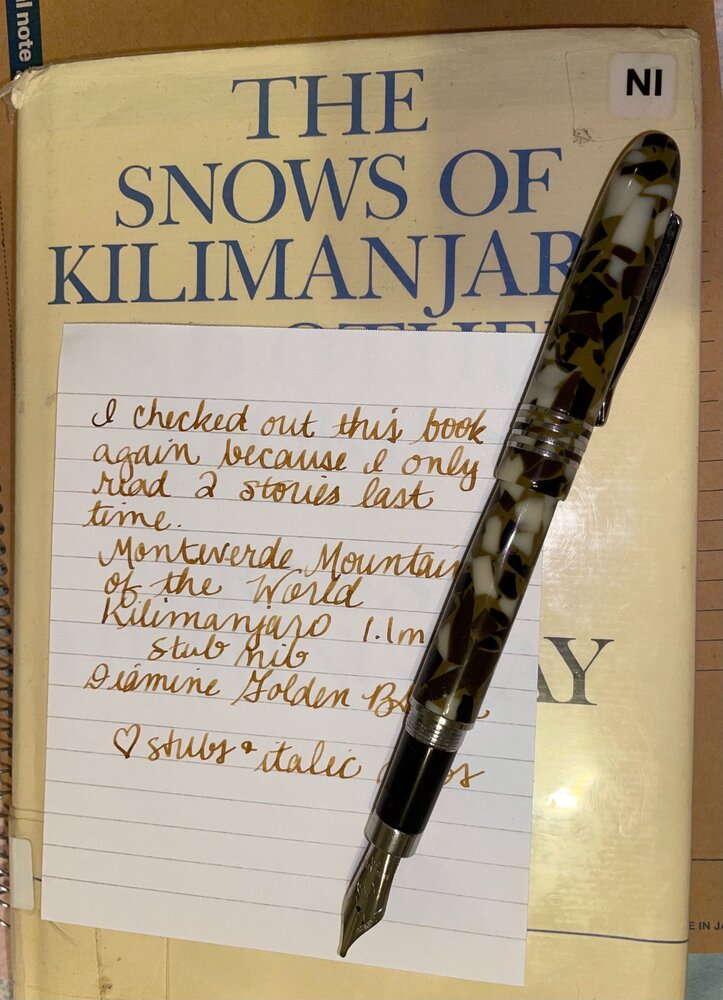 l note
NI
THE
SNOWS OF
KILIMANJAR
I checked out this book
again because I only
read 2 stories last
time.
Monteverde Mountain
of the World
Kilimanjaro 1.1m
stub nib
Diamine Golden
♡ stubs & italic
AY
E IN JA